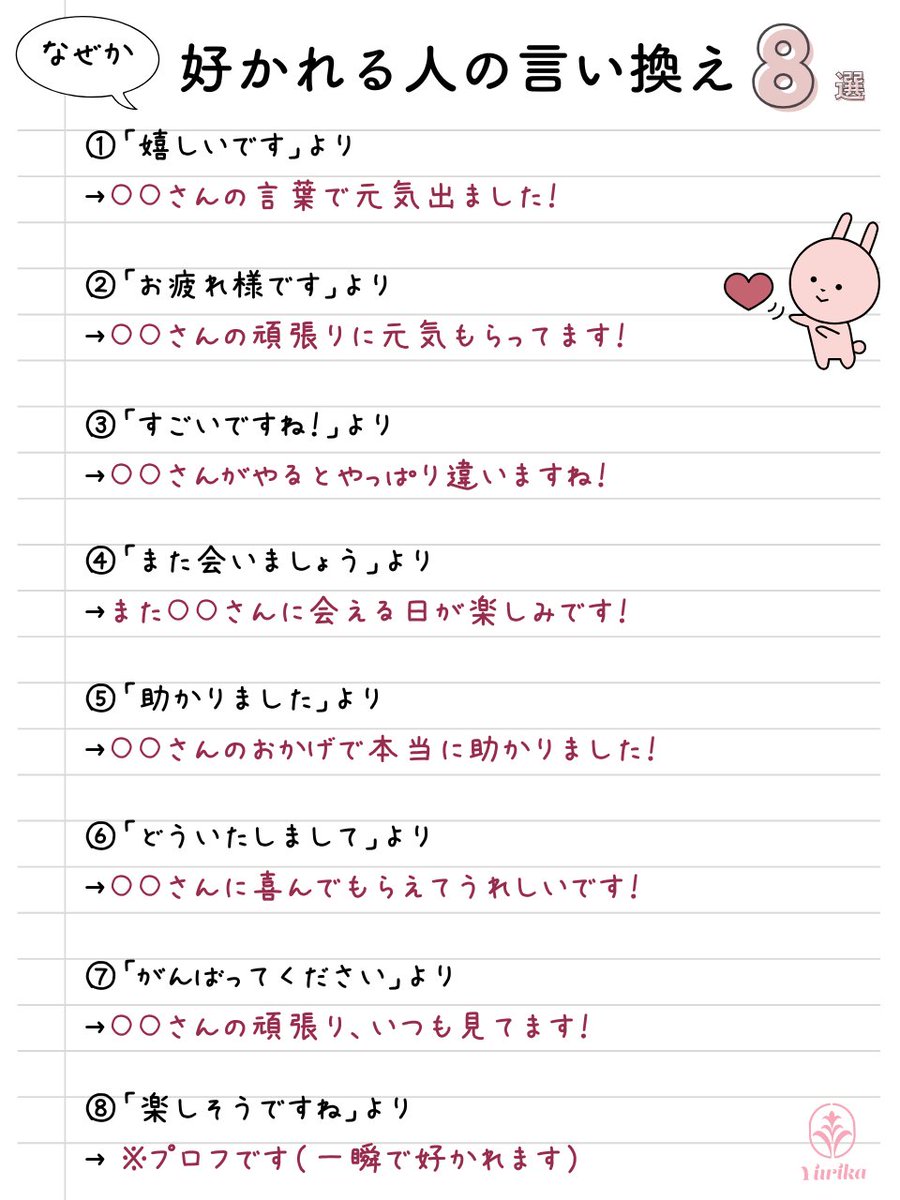 なぜか
好かれる人の言い換え8選
①「嬉しいです」より
→〇〇さんの言葉で元気出ました!
②「お疲れ様です」より
→〇〇さんの頑張りに元気もらってます!
③「すごいですね!」より
→〇〇さんがやるとやっぱり違いますね!
④「また会いましょう」より
→また〇〇さんに会える日が楽しみです!
⑤「助かりました」より
→〇〇さんのおかげで本当に助かりました!
⑥「どういたしまして」より
→〇〇さんに喜んでもらえてうれしいです!
⑦「がんばってください」より
→〇〇さんの頑張り、いつも見てます!
⑧「楽しそうですね」より
→ ※プロフです(一瞬で好かれます)
Yurika